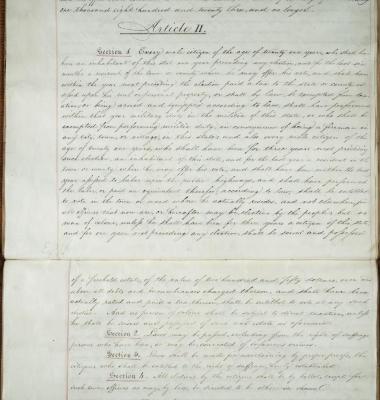 one thousand eight hundred and twenty three, and no longer.
Article II.
Section 1 Every male citizen of the age of twenty one years, who shall have
been an inhabitant of this state one year preceding any election, and for the last six
months a resident of the town or county where he may offer his vote, and shall have
within the year next preceding the election paid a tax to the state or county as-
sessed upon his real or personal property, or shall by law be exempted from tax-
ation; or being armed and equipped according to law, shall have performed
within that year military duty in the militia of this state, or who shall be
exempted from performing militia duty in consequence of being a fireman in
any city, town, or village in this state; and also every male citizen of the
age of twenty one years, who shall have been for three years next preceding
such election an inhabitant of this state, and for the last year a resident in the
town or county where he may offer his vote, and shall have been within the last
year assessed to labor upon the public highways, and shall have performed
the labor or paid an equivalent therefor, according to law, shall be entitled
to vote in the town or ward where he actually resides, and not elsewhere for
all officers that now are, or hereafter may be elective by the people; but no
man of colour, unless he shall have been for three years a citizen of this state
and for one year next preceding any election shall be seized and possessed
of a freehold estate of the value of two hundred and fifty dollars, over and
above all debts and incumbrances charged thereon, and shall have been
actually rated and paid a tax thereon, shall be entitled to vote at any such
election. And no person of colour shall be subject to direct taxation, unless
he shall be seized and possessed of such real estate as aforesaid.
Section 2. Laws may be passed, excluding from the right of suffrage
persons who have been, or may be convicted of infamous crimes.
Section 3. Laws shall be made for ascertaining by proper proofs, the
citizens who shall be entitled to the right of suffrage hereby established.
Section 4. All elections by the citizens shall be by ballot, except for
such town officers as may by law be directed to be otherwise chosen.